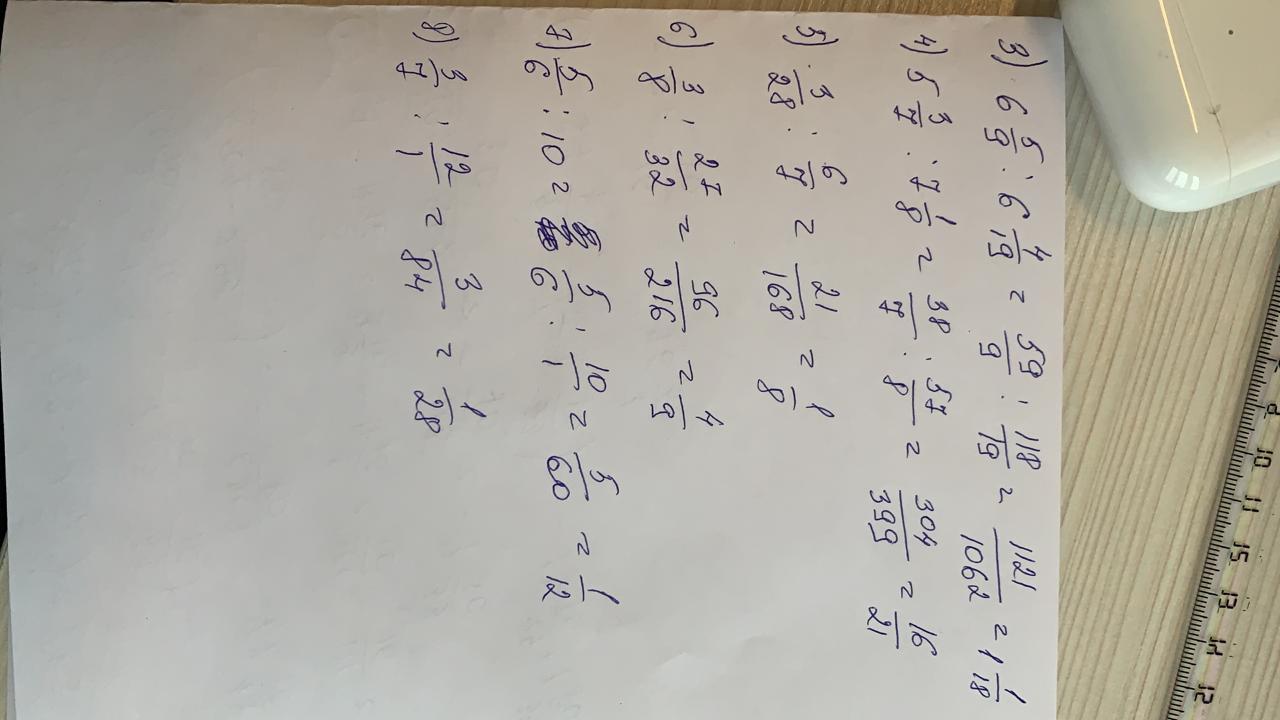 3) 6 5/9 : 6 4/19 = 59/9 : 118/19 = 1121/1062 = 1 1/18
4) 5 3/7 : 7 1/8 = 38/7 : 57/8 = 304/399 = 16/21
5) 3/28 : 6/7 = 21/168 = 1/8
6) 3/8 : 27/32 = 96/216 = 4/9
7) 5/6 : 10 = 5/6 : 10/1 = 5/60 = 1/12
8) 3/7 : 12/1 = 3/84 = 1/28
9 10 11 15 13 14 12